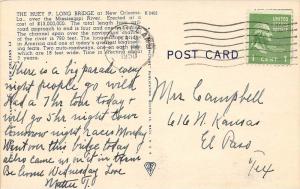 THE HUEY P. LONG BRIDGE at New Orleans,
La., over the Mississippi River. Erected at a
cost of $13,000,000. The total length from
road approach to end is four and
The channel span over the navigation
is over 790 feet. The longest
in America and one of today's greatest
ing feats. Two auto-roadways, one on each
which are 18 feet wide. Time to cross it
about 7 years.
POST CARD
1950
UNITED STATES
1 CENT 1
There is a big parade every
night people go wild
Had a 7 hr tour today &
will go 5 hr night town
tomorrow night races Monday
Went over this bridge today
also came in on it in train
Be home Wednesday Love
Mrs Campbell
616 N Kansas
El Paso
Tex